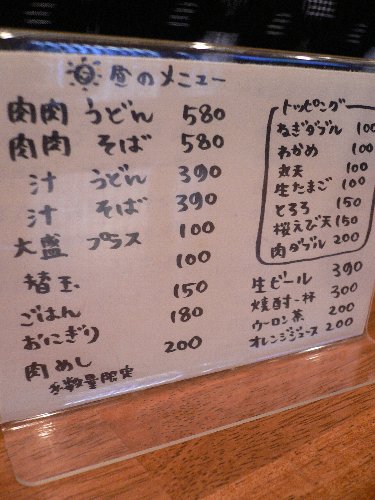 昼のメニュー
肉肉 うどん 580
肉肉 そば 580
汁 うどん 390
汁 そば 390
大盛 プラス 100
替玉 100
ごはん 150
おにぎり 180
肉めし 200
※数量限定
トッピング
ねぎダブル 100
わかめ 100
丸天 100
生たまご 100
とろろ 150
桜えび天 150
肉ダブル 200
生ビール 390
焼酎一杯 300
ウーロン茶 200
オレンジジュース 200